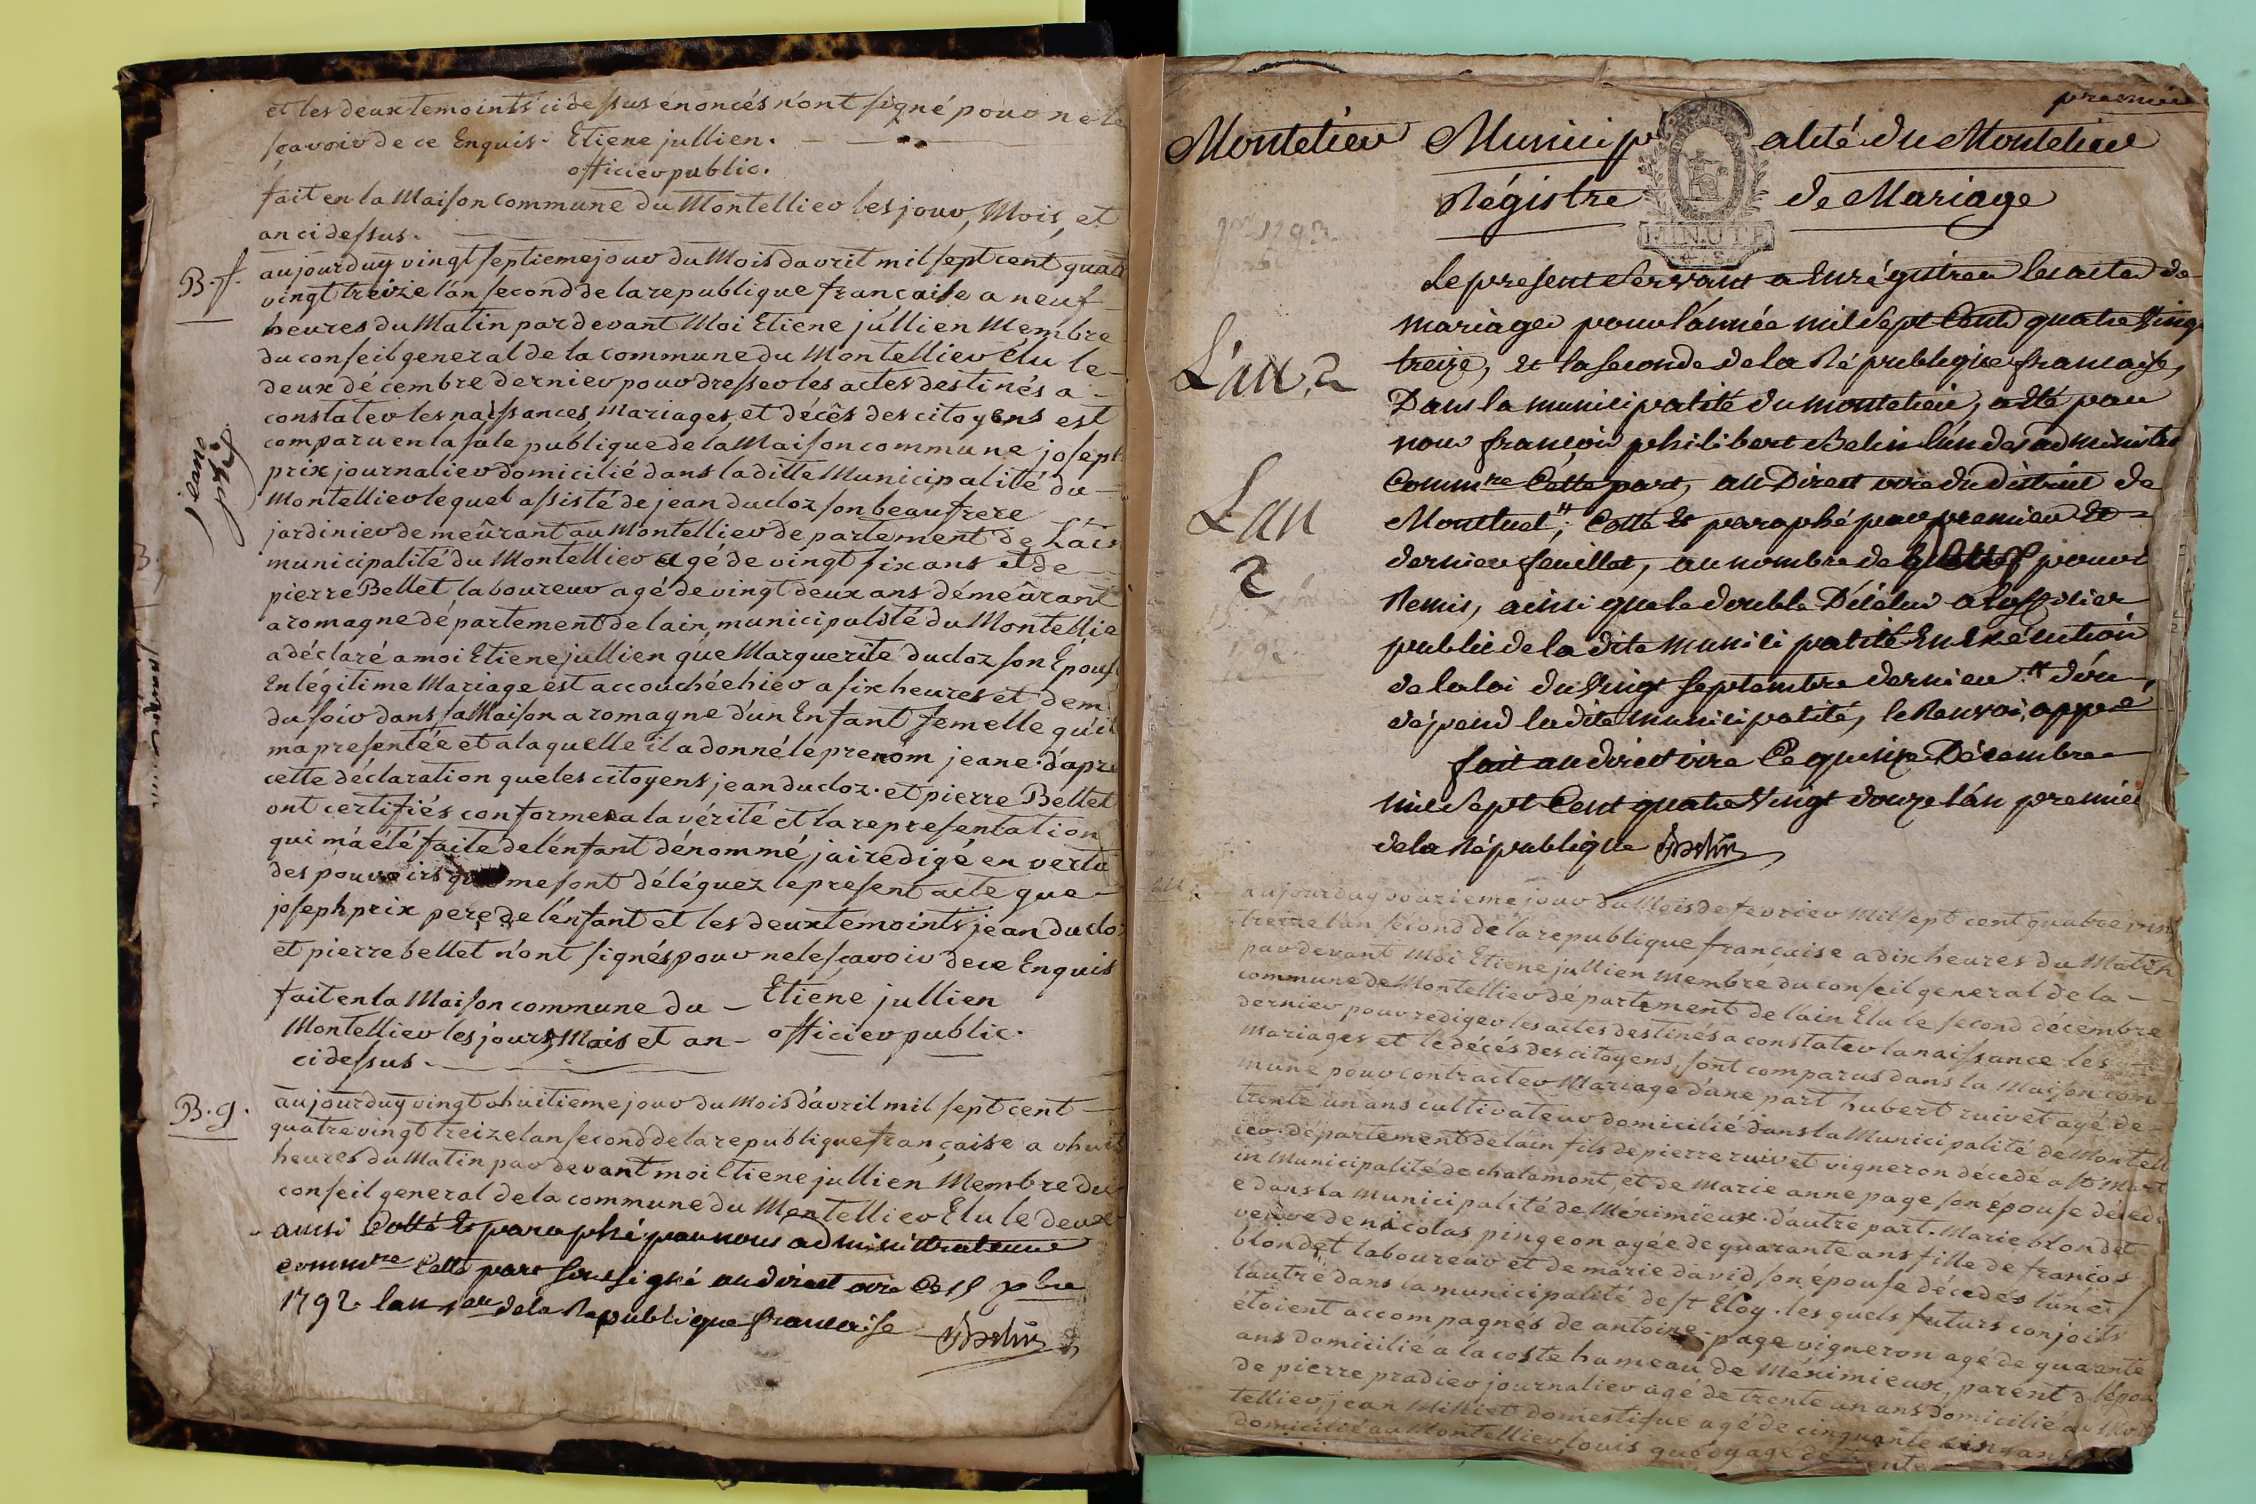 et les deux temoints ci dessus énoncés n'ont signé pour ne le
sçavoir de ce Enquis. Etiene jullien.
officier public.
fait en la Maison Commune du Montellier les jour, Mois, et
an ci dessus.
B. f.
aujourduy vingt septieme jour du Mois davril mil sept cent quatre
vingt treize lan second de la republique française a neuf
heures du Matin pardevant Moi Etiene jullien Membre
du conseil general de la commune du Montellier élu le
deux décembre dernier pour dresser les actes destinés a
constater les naissances mariages et décès des citoyens est
comparu en la sale publique de la Maison commune joseph
prix journalier domicilié dans laditte Municipalité du
Montellier lequel assisté de jean ducloz son beaufrere
jardinier demeûrant au Montellier departement de Lain
municipalité du Montellier agé de vingt six ans et de
pierre Bellet laboureur agé de vingt deux ans démeûrant
a romagne département de lain municipalité du Montellier
a déclaré a moi Etiene jullien que Marguerite ducloz son Epouse
En légitime Mariage est accouchée hier a six heures et demi
du soir dans sa Maison a romagne d'un Enfant femelle qu'il
ma presentée et a laquelle il a donné le prenom jeane. d'après
cette déclaration que les citoyens jean ducloz. et pierre Bellet
ont certifiés conforme a la vérité et la representation
qui m'a été faite de l'énfant dénommé, jai redigé en vertu
des pouvoirs qui me sont délégués le present acte que
joseph prix pere de l'énfant et les deux temoints jean ducloz
et pierre bellet n'ont signés pour ne le sçavoir de ce Enquis
fait en la Maison commune du – Etiéne jullien
Montellier les jours, Mois et an – officier public.
ci dessus.
jeane
prix
B. g.
aujourduy vingt ohuitieme jour du Mois d'avril mil sept cent
quatre vingt treize lan second de la republique française a ohuit
heures du Matin par devant moi Etiene jullien Membre du
conseil general de la commune du Montellier Elu le deux
aussi Cotté Et paraphé par nous administrateur
commre Cette part soussigné au directoire Ce 15 xbre
1792. lan 1er de la Republique francaise Belin
premier
Montelier Municip alité du Montelier
Régistre de Mariage
MINUTE
Le present servant a Enrégistrer les actes de
mariage pour l'année mil sept Cent quatre Vingt
treize, et la seconde de la République francaise,
Dans la municipalité du montelier, a été par
nous françois philibert Belin l'un des administr
Commre Cette part, au Directoire du district de
Montluel; Cotté Et paraphé par premier Et
dernier feuillet, au nombre de pour
Remis, ainsi que le double D'icelui a l'officier
public de la dite municipalité En Exécution
de la loi du Vingt septembre dernier. d'ou
dépend ladite municipalité, le Renvoi, apprd
fait au directoire Ce quinze Décembre
mil sept Cent quatre Vingt douze l'an premier
de la République Belin
L'an 2
Lan
2
aujourduy douzieme jour du Mois de fevrier Mil sept cent quatre vingt
treize l'an second de la republique française a dix heures du Matin
par devant Moi Etiene jullien membre du conseil general de la
commune de Montellier département de lain Elu le second décembre
dernier pour rediger les actes destinés a constater la naissance les
Mariages et le décés des citoyens, sont comparus dans la Maison com
mune pour contracter Mariage d'une part hubert ruivet agé de
trente un ans cultivateur domicilié dans la Municipalité de Montell
ier. département de lain fils de pierre ruivet vigneron décedé a st Mart
in Municipalité de chalamont, et de Marie anne page son épouse déced
é dans la Municipalité de Méximieux. d'autre part. Marie blondet
veuve de nicolas pingeon agée de quarante ans fille de françois
blondet laboureur et de marie david son épouse décedés lun et
lautre dans la municipalité de st Eloy. les quels futurs conjoints
étoient accompagnés de antoine page vigneron agé de quarante
ans domicilié a la coste hameau de Méximieux, parent d. lépoux
de pierre pradier journalier agé de trente un ans domicilié au Mon
tellier, jean Milliet domestique agé de cinquante cinq ans
domicilié au Montellier, louis agé de trente